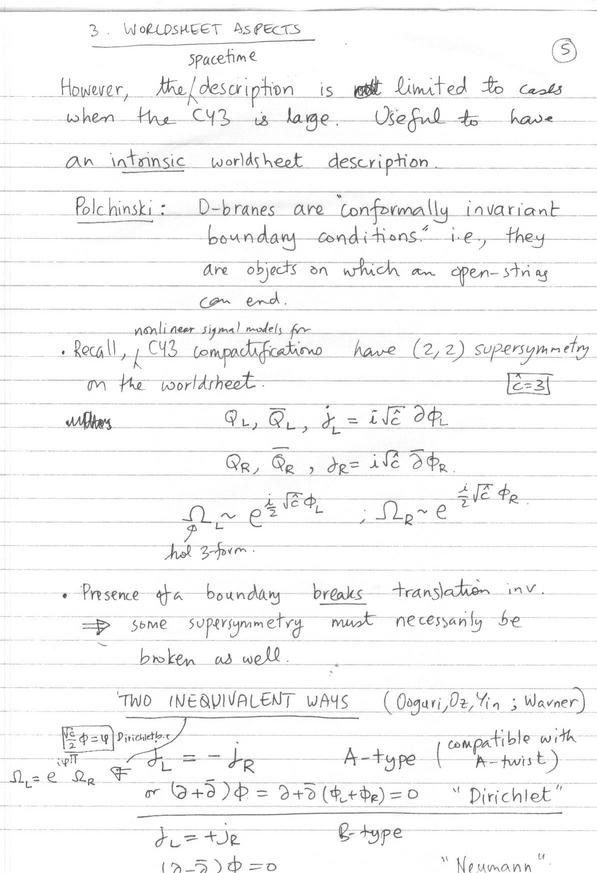 3. WORLDSHEET ASPECTS
5
spacetime
However, the description is limited to cases
when the CY3 is large. Useful to have
an intrinsic worldsheet description.
Polchinski: D-branes are "conformally invariant
boundary conditions." i.e., they
are objects on which an open-string
can end.
nonlinear sigmal models for
• Recall, CY3 compactifications have (2,2) supersymmetry
on the worldsheet. ĉ=3
Q_L, Q̄_L, j_L = i√ĉ ∂ϕ_L
Q_R, Q̄_R, j_R = i√ĉ ∂̄ϕ_R.
Ω_L ~ e^{i/2 √ĉ ϕ_L} ; Ω_R ~ e^{i/2 √ĉ ϕ_R}.
hol 3-form.
• Presence of a boundary breaks translation inv.
⇒ some supersymmetry must necessarily be
broken as well.
TWO INEQUIVALENT WAYS (Ooguri, Oz, Yin ; Warner)
√ĉ/2 ϕ = φ Dirichlet b.c
j_L = - j_R A-type (compatible with A-twist)
Ω_L = e^{iφπ} Ω_R
or (∂+∂̄)ϕ = ∂+∂̄(ϕ_L+ϕ_R) = 0 "Dirichlet"
j_L = + j_R B-type
(∂-∂̄)ϕ = 0 "Neumann"